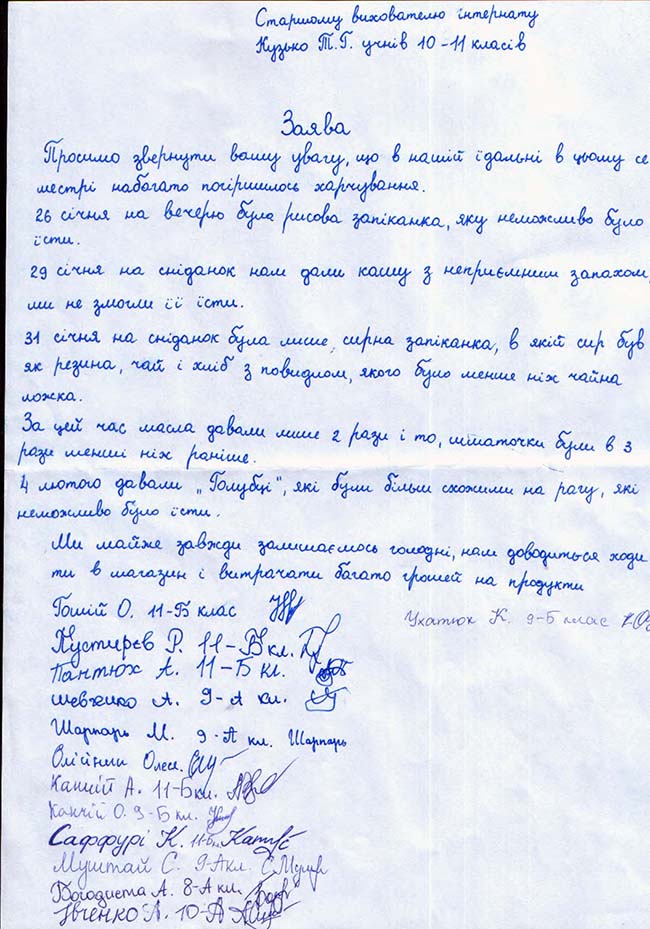 Старшому вихователю інтернату
Кузько Т.Г. учнів 10-11 класів
Заява
Просимо звернути вашу увагу, що в нашій їдальні в цьому се
местрі набагато погіршилось харчування.
26 січня на вечерю була рисова запіканка, яку неможливо було
їсти.
29 січня на сніданок нам дали кашу з неприємним запахом,
ми не змогли її їсти.
31 січня на сніданок була лише, сирна запіканка, в якій сир був
як резина, чай і хліб з повидлом, якого було менше ніж чайна
ложка.
За цей час масла давали лише 2 рази і то, шматочки були в 3
рази менші ніж раніше.
4 лютого давали „Голубці", які були більш схожими на рагу, які
неможливо було їсти.
Ми майже завжди залишаємось голодні, нам доводиться ходи
ти в магазин і витрачати багато грошей на продукти
Гомій О. 11-Б клас
Ухатюк К. 9-Б клас
Пустирєв Р. 11-В кл.
Пантюх А. 11-Б кл.
Шевченко А. 9-А кл.
Шарпарь М. 9-А кл. Шарпарь
Олійник Олеся.
А. 11-Б кл.
О. 9-Б кл.
Саффурі К. 11-Б
Муштай С. 9-А кл.
Богодиста А. 8-А кл.
Івченко А. 10-А